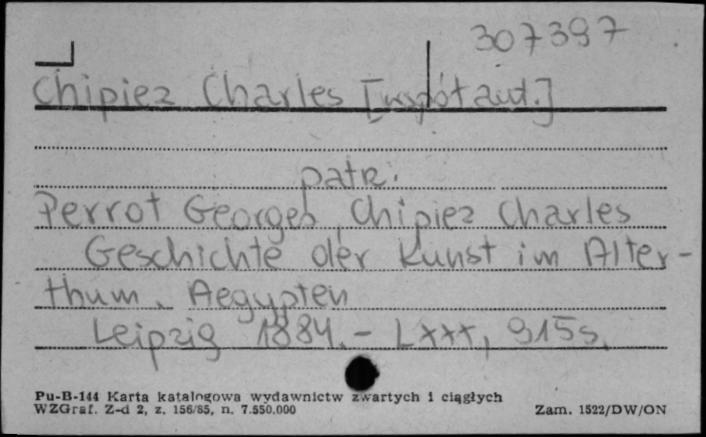 307397
Chipiez Charles [współaut.]
patrz.
Perrot Georges, Chipiez Charles
Geschichte der Kunst im Alter-
thum. Aegypten
Leipzig 1884. - LXXX, 915 s.
Pu-B-144 Karta katalogowa wydawnictw zwartych i ciągłych
WZGraf. Z-d 2, z. 156/85, n. 7.550.000
Zam. 1522/DW/ON